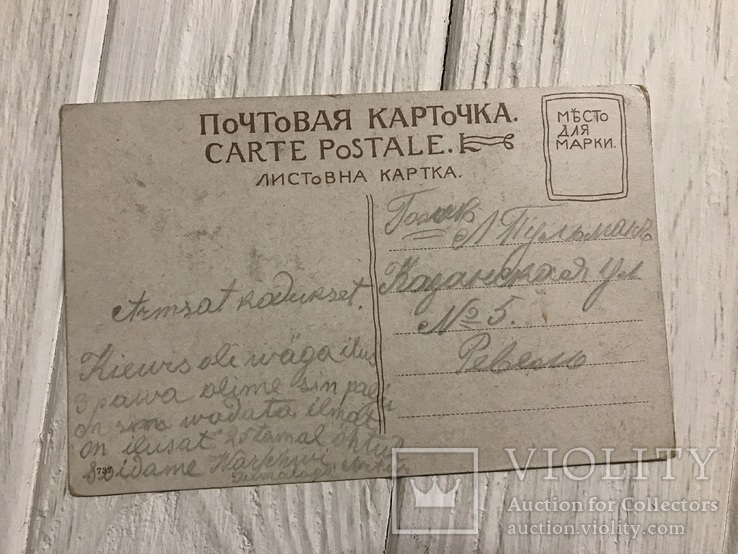 ПОЧТОВАЯ КАРТОЧКА.
CARTE POSTALE.
ЛИСТОВНА КАРТКА.
МѢСТО
ДЛЯ
МАРКИ.
Л Пульманъ
Казанская ул
№ 5.
Ревель
Armsat kodukset.
Kiewis oli wäga ilus
3 päwa olime siin palju
on sina wadata. ilmat
on ilusat 25 tamal õhtul
Soidame
737
VIOLITY
Auction for Collectors
auction.violity.com